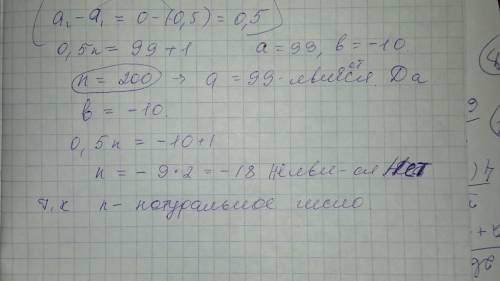 a₂-a₁ = 0-(0,5) = 0,5
0,5n = 99+1 a=99, в=-10.
n = 200 → a = 99-явл-ся. Да
в = -10.
0, 5n = -10+1
n = -9·2 = -18 Нет
т.к n- натуральное число